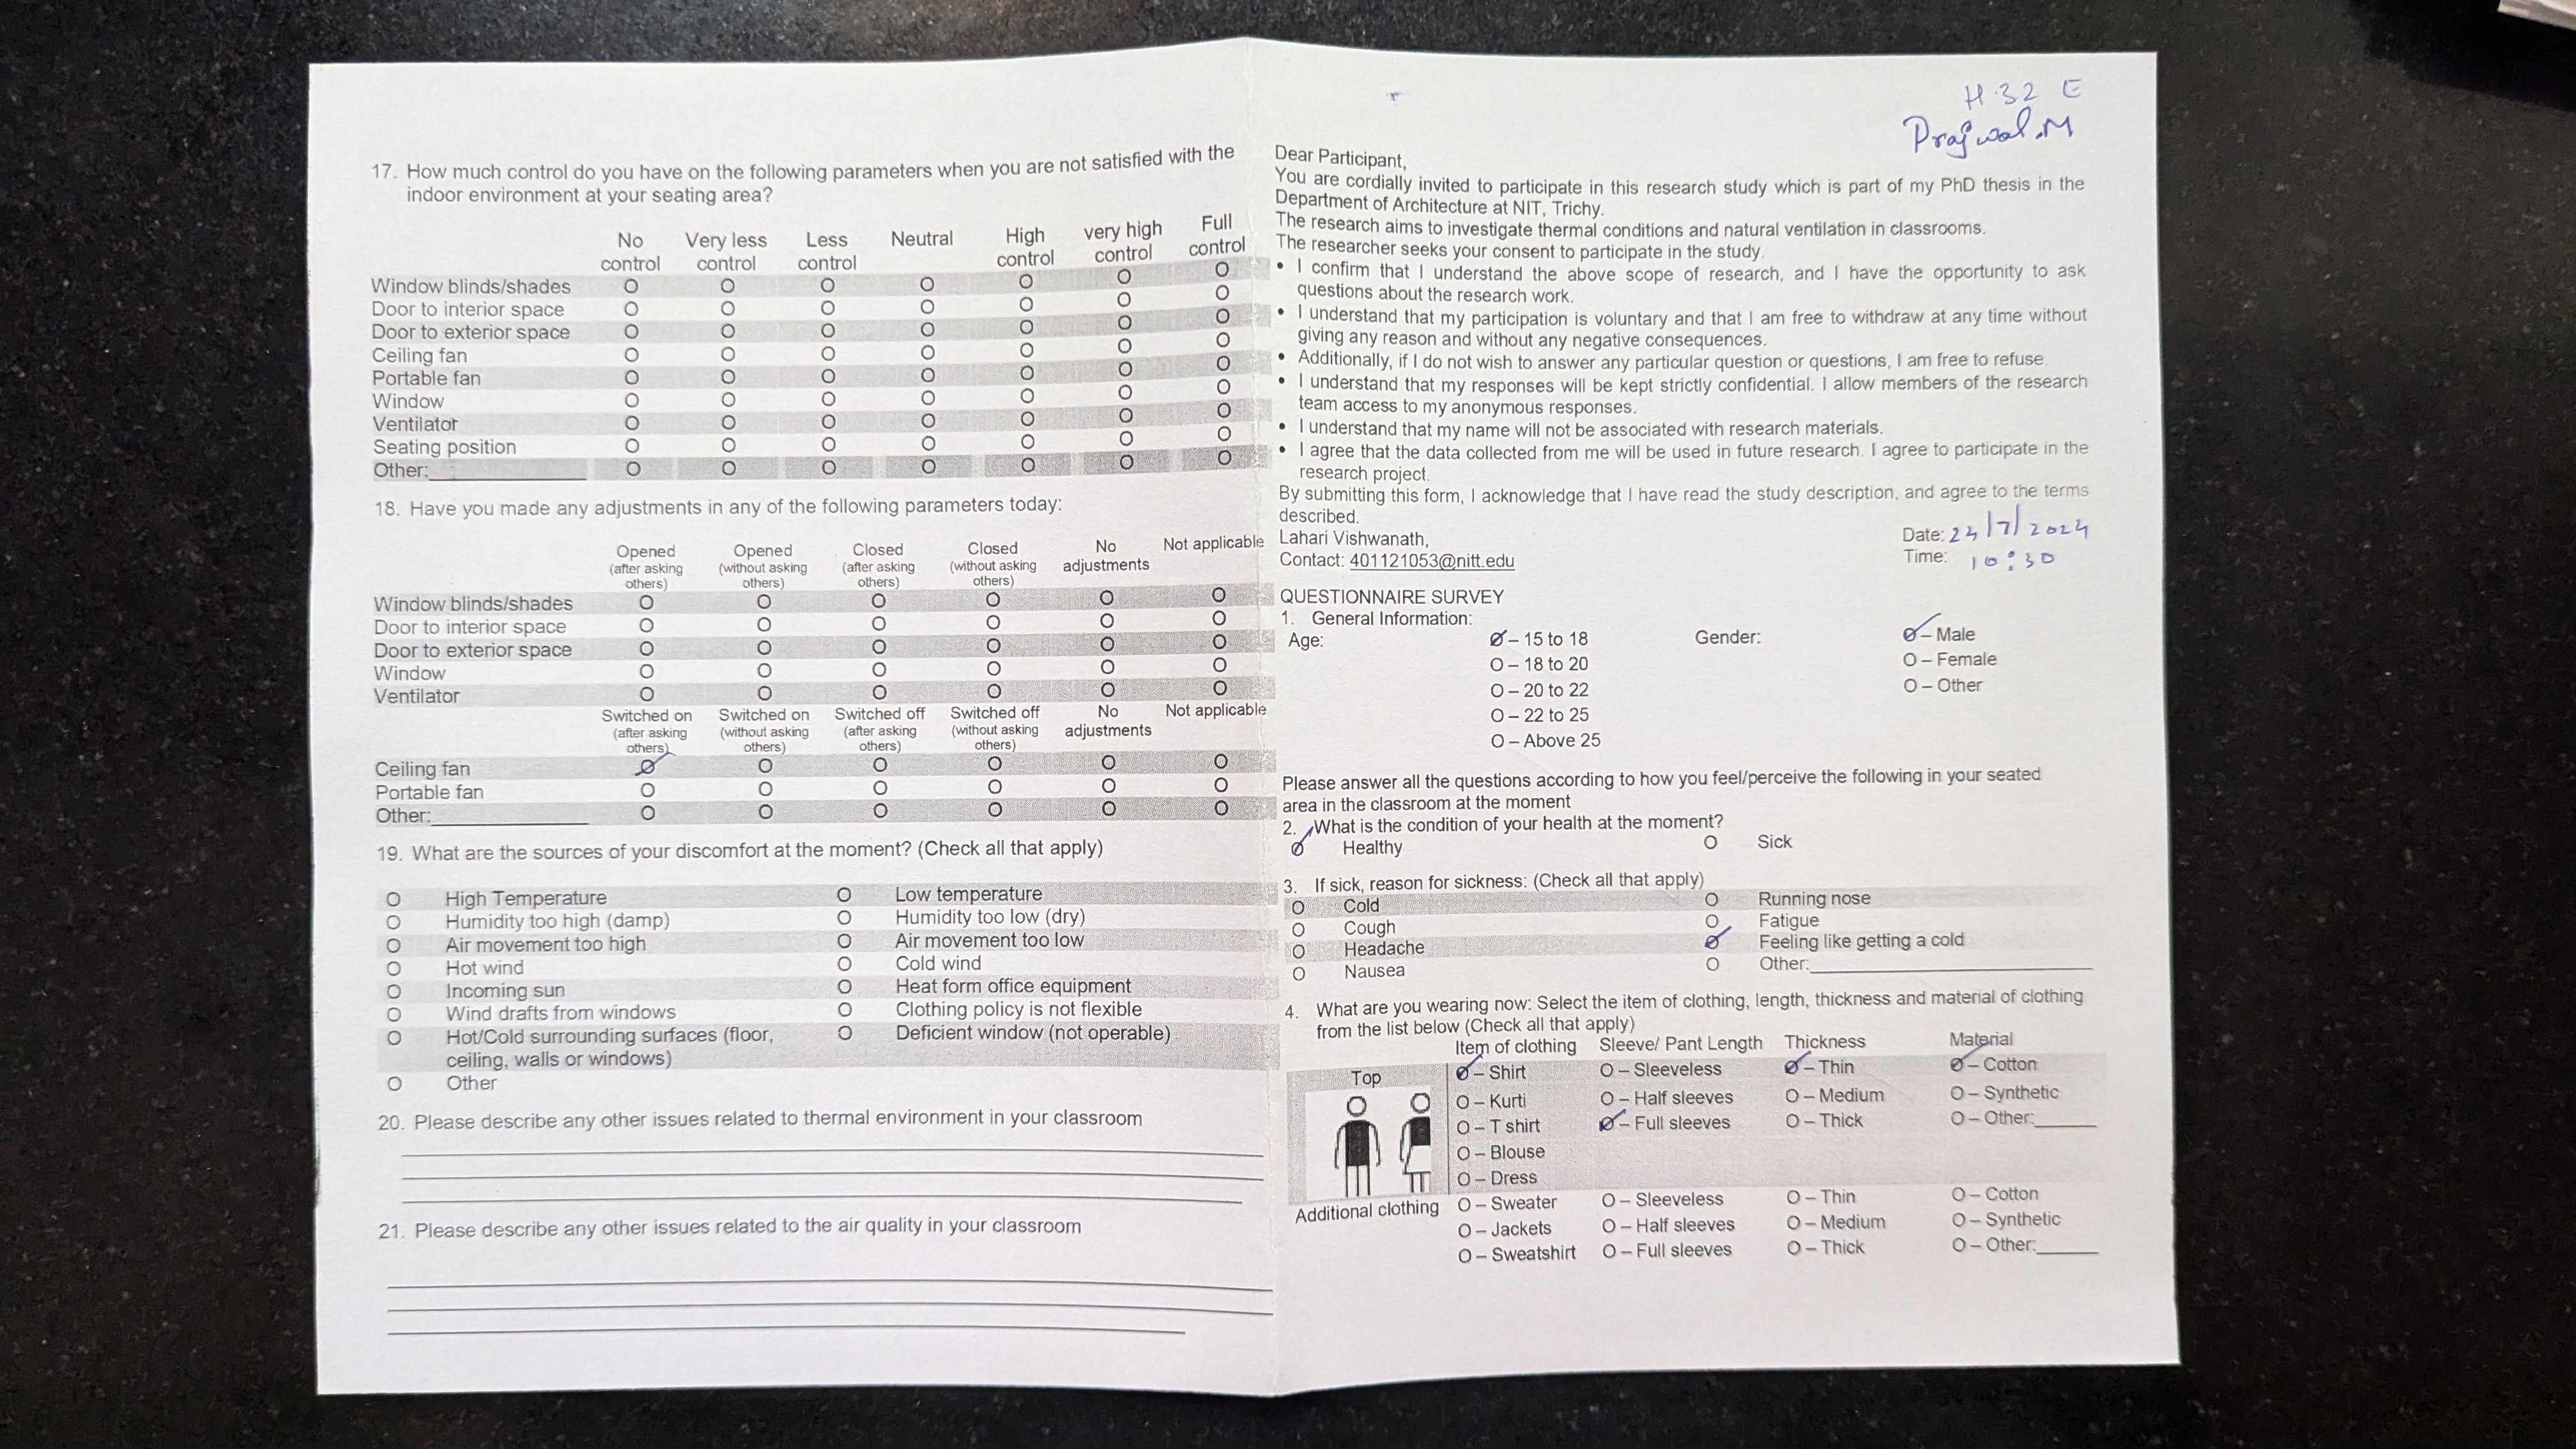 17. How much control do you have on the following parameters when you are not satisfied with the
indoor environment at your seating area?
No control Very less control Less control Neutral High control very high control Full control
Window blinds/shades O O O O O O O
Door to interior space O O O O O O O
Door to exterior space O O O O O O O
Ceiling fan O O O O O O O
Portable fan O O O O O O O
Window O O O O O O O
Ventilator O O O O O O O
Seating position O O O O O O O
Other: O O O O O O O
18. Have you made any adjustments in any of the following parameters today:
Opened (after asking others) Opened (without asking others) Closed (after asking others) Closed (without asking others) No adjustments Not applicable
Window blinds/shades O O O O O O
Door to interior space O O O O O O
Door to exterior space O O O O O O
Window O O O O O O
Ventilator O O O O O O
Switched on (after asking others) Switched on (without asking others) Switched off (after asking others) Switched off (without asking others) No adjustments Not applicable
Ceiling fan O O O O O O
Portable fan O O O O O O
Other: O O O O O O
19. What are the sources of your discomfort at the moment? (Check all that apply)
O High Temperature O Low temperature
O Humidity too high (damp) O Humidity too low (dry)
O Air movement too high O Air movement too low
O Hot wind O Cold wind
O Incoming sun O Heat form office equipment
O Wind drafts from windows O Clothing policy is not flexible
O Hot/Cold surrounding surfaces (floor, O Deficient window (not operable)
ceiling, walls or windows)
O Other
20. Please describe any other issues related to thermal environment in your classroom
21. Please describe any other issues related to the air quality in your classroom
H 32 E
Prajwal.M
Dear Participant,
You are cordially invited to participate in this research study which is part of my PhD thesis in the
Department of Architecture at NIT, Trichy.
The research aims to investigate thermal conditions and natural ventilation in classrooms.
The researcher seeks your consent to participate in the study.
• I confirm that I understand the above scope of research, and I have the opportunity to ask
questions about the research work.
• I understand that my participation is voluntary and that I am free to withdraw at any time without
giving any reason and without any negative consequences.
• Additionally, if I do not wish to answer any particular question or questions, I am free to refuse.
• I understand that my responses will be kept strictly confidential. I allow members of the research
team access to my anonymous responses.
• I understand that my name will not be associated with research materials.
• I agree that the data collected from me will be used in future research. I agree to participate in the
research project.
By submitting this form, I acknowledge that I have read the study description, and agree to the terms
described.
Lahari Vishwanath, Date: /7/2024
Contact: 401121053@nitt.edu Time: 10:30
QUESTIONNAIRE SURVEY
1. General Information:
Age: O – 15 to 18 Gender: O – Male
O – 18 to 20 O – Female
O – 20 to 22 O – Other
O – 22 to 25
O – Above 25
Please answer all the questions according to how you feel/perceive the following in your seated
area in the classroom at the moment
2. What is the condition of your health at the moment?
O Healthy O Sick
3. If sick, reason for sickness: (Check all that apply)
O Cold O Running nose
O Cough O Fatigue
O Headache O Feeling like getting a cold
O Nausea O Other:
4. What are you wearing now: Select the item of clothing, length, thickness and material of clothing
from the list below (Check all that apply)
Item of clothing Sleeve/ Pant Length Thickness Material
Top O – Shirt O – Sleeveless O – Thin O – Cotton
O – Kurti O – Half sleeves O – Medium O – Synthetic
O – T shirt O – Full sleeves O – Thick O – Other:
O – Blouse
O – Dress
Additional clothing O – Sweater O – Sleeveless O – Thin O – Cotton
O – Jackets O – Half sleeves O – Medium O – Synthetic
O – Sweatshirt O – Full sleeves O – Thick O – Other: